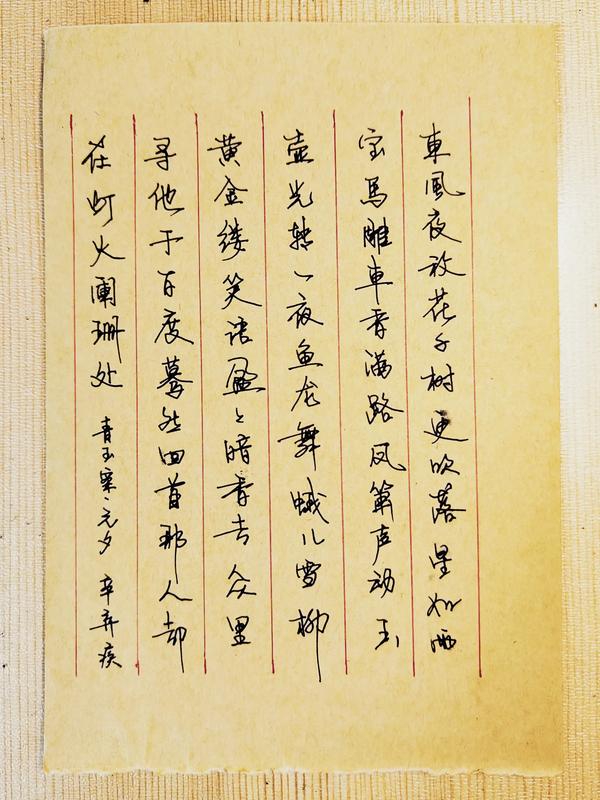 東風夜放花千树更吹落星如雨
宝馬雕車香满路凤箫声动玉
壶光转一夜鱼龙舞蛾儿雪柳
黄金缕笑语盈々暗香去众里
寻他千百度蓦然回首那人却
在灯火阑珊处 青玉案·元夕 辛弃疾